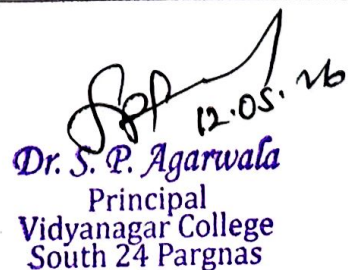 12.05.26
Dr. S. P. Agarwala
Principal
Vidyanagar College
South 24 Pargnas